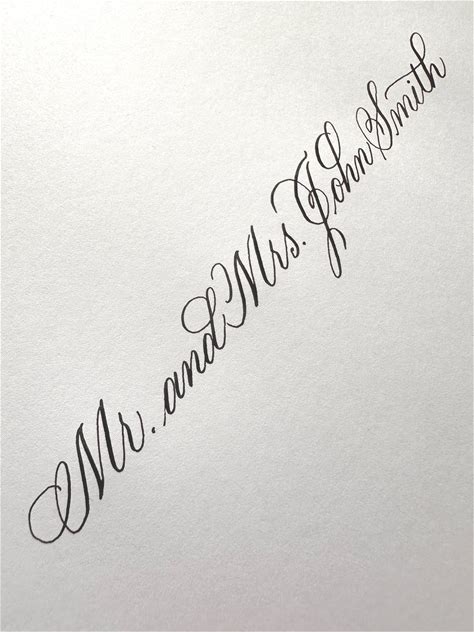 Mr. and Mrs. John Smith